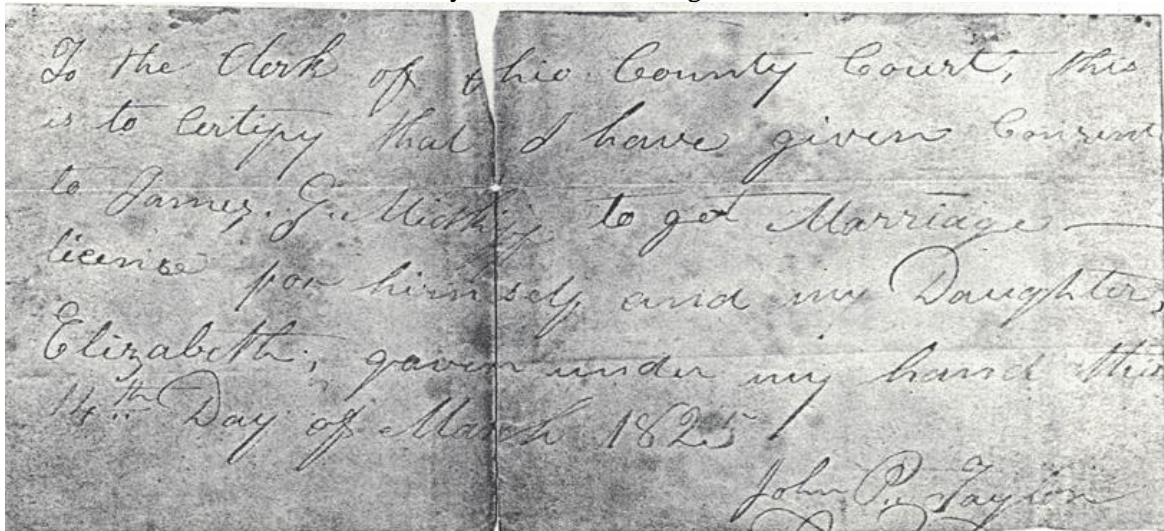 To the Clerk of Ohio County Court, this
is to Certify that I have given Consent
to James. G. to get Marriage —
license for himself and my Daughter,
Elizabeth, gaven under my hand this
14th Day of March 1825
John P. Taylor